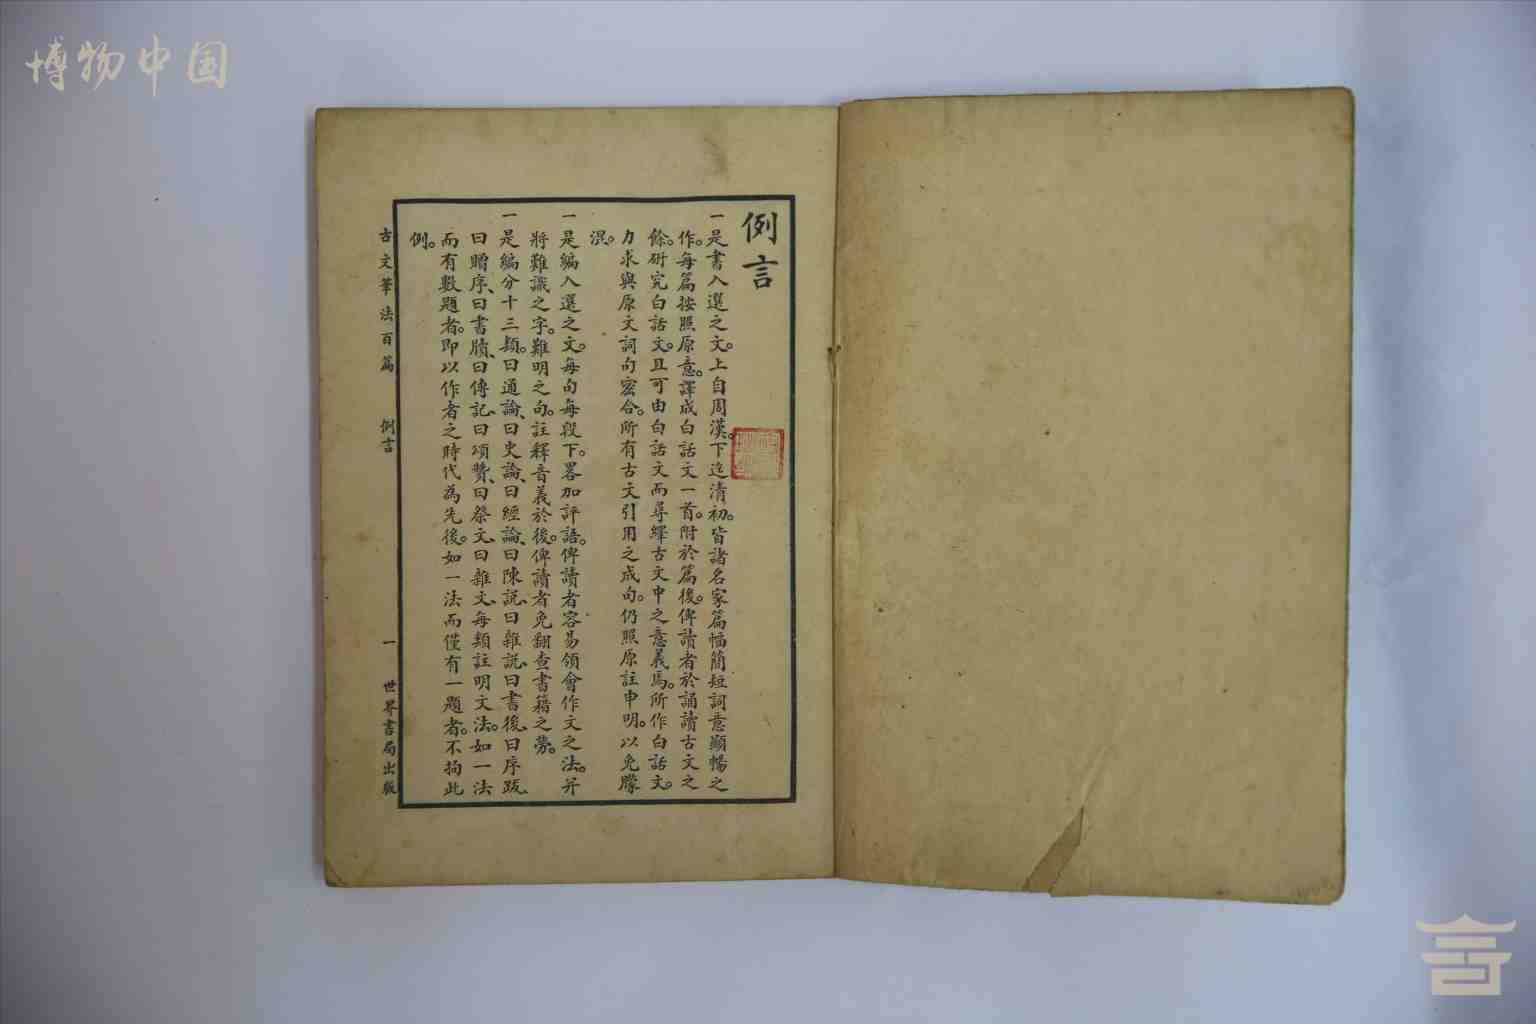 博物中国
例言
一是書入選之文。上自周漢。下迄清初。皆諸名家篇幅簡短詞意顯暢之
作。每篇按照原意。譯成白話文一首。附於篇後。俾讀者於誦讀古文之
餘。研究白話文。且可由白話文而尋繹古文中之意義焉。所作白話文。
力求與原文詞句密合。所有古文引用之成句。仍照原註申明。以免矇
混。
一是編入選之文。每句每段下。畧加評語。俾讀者容易領會作文之法。并
將難識之字。難明之句。註釋音義於後。俾讀者免翻查書籍之勞。
一是編分十三類。曰通論、曰史論、曰經論、曰陳説、曰雜説、曰書後、曰序跋、
曰贈序、曰書牘、曰傳記、曰頌贊、曰祭文、曰雜文、每類註明文法。如一法
而有數題者。即以作者之時代為先後。如一法而僅有一題者。不拘此
例。
古文筆法百篇 例言 一 世界書局出版